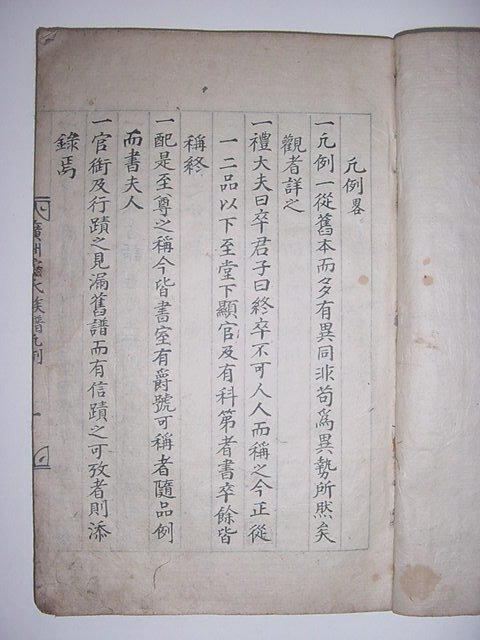 凢例畧
一凢例一從舊本而多有異同非苟爲異勢所然矣
觀者詳之
一禮大夫曰卒君子曰終卒不可人人而稱之今正從
一二品以下至堂下顯官及有科第者書卒餘皆
稱終
一配是至尊之稱今皆書室有爵號可稱者隨品例
而書夫人
一官銜及行蹟之見漏舊譜而有信蹟之可攷者則添
錄焉
廣州 氏族譜凢例 一